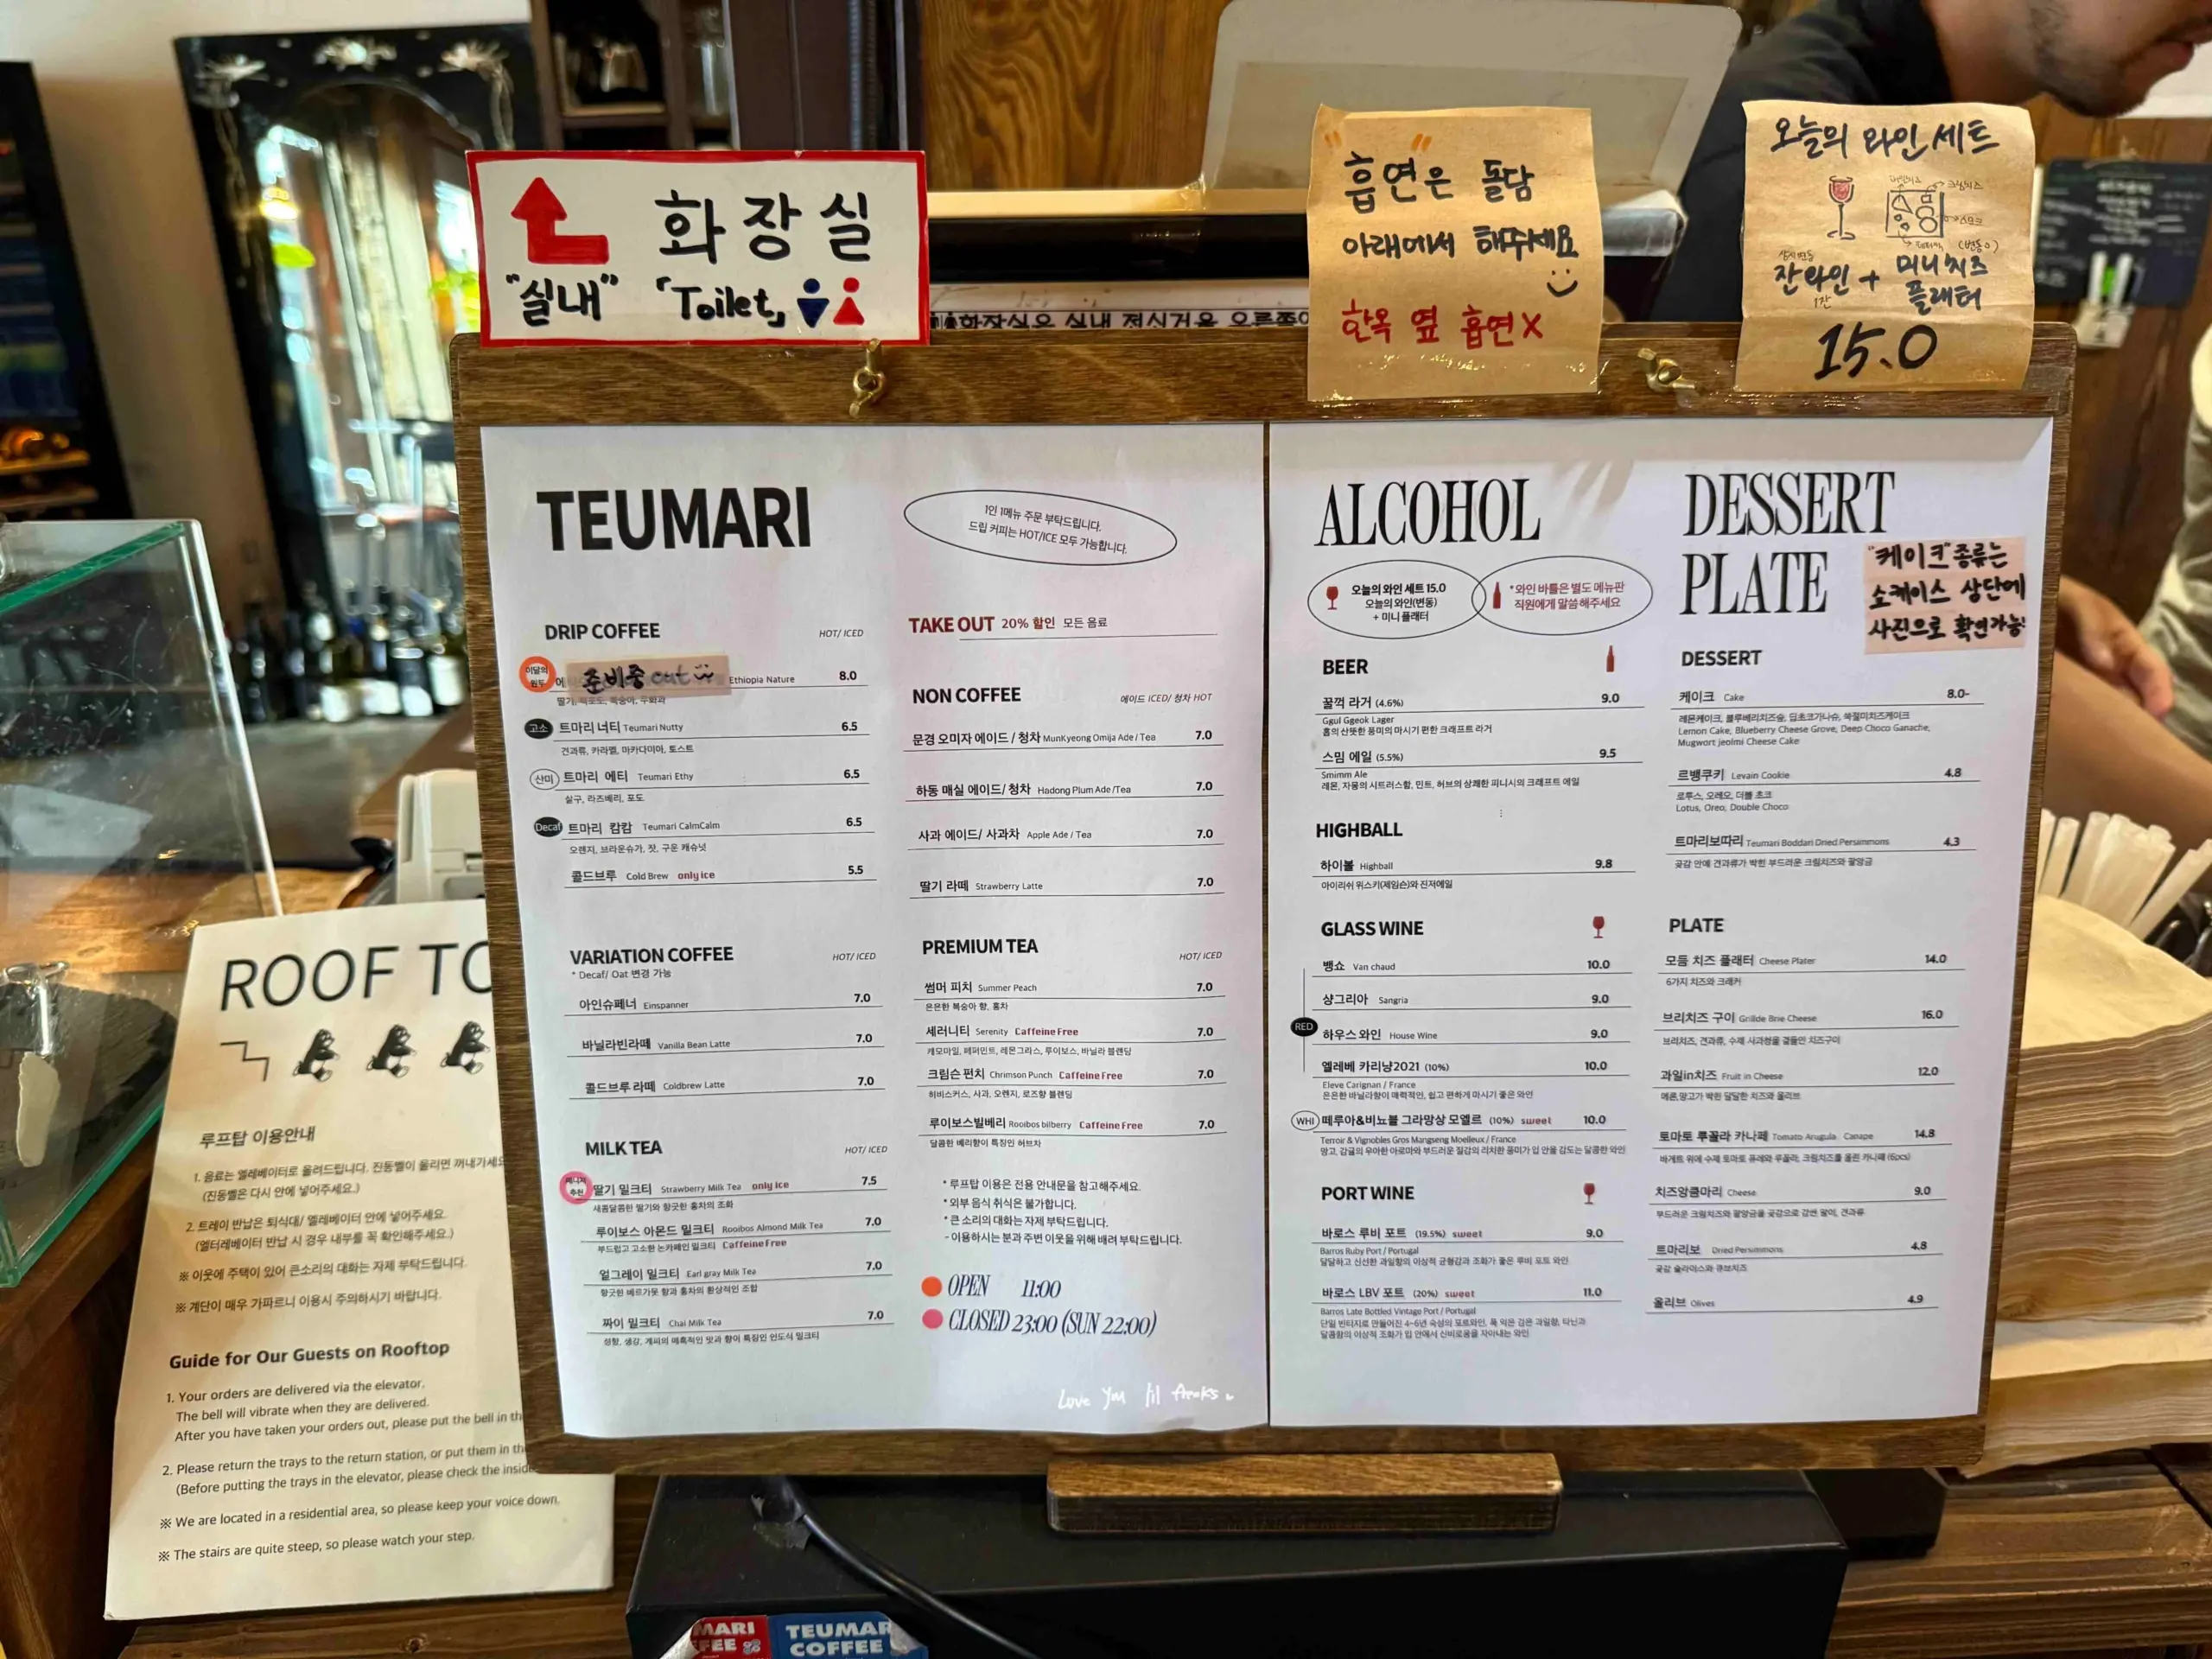 화장실
"실내" 「Toilet」
"흡연"은 돌담
아래에서 해주세요
한옥 옆 흡연X
오늘의 와인 세트
잔와인 + 미니 치즈
1잔 플래터
(변동o)
15.0
TEUMARI
1인 1메뉴 주문 부탁드립니다.
드립 커피는 HOT/ICE 모두 가능합니다.
DRIP COFFEE HOT/ ICED
이달의
원두
준비중 Ethiopia Nature 8.0
고소 트마리 너티 Teumari Nutty 6.5
견과류, 카라멜, 마카다미아, 토스트
산미 트마리 에티 Teumari Ethy 6.5
살구, 라즈베리, 포도
Decaf 트마리 캄캄 Teumari CalmCalm 6.5
오렌지, 브라운슈가, 잣, 구운 캐슈넛
콜드브루 Cold Brew only ice 5.5
VARIATION COFFEE HOT/ ICED
* Decaf/ Oat 변경 가능
아인슈페너 Einspanner 7.0
바닐라빈라떼 Vanilla Bean Latte 7.0
콜드브루 라떼 Coldbrew Latte 7.0
MILK TEA HOT/ ICED
추천 딸기 밀크티 Strawberry Milk Tea only ice 7.5
새콤달콤한 딸기와 향긋한 홍차의 조화
루이보스 아몬드 밀크티 Rooibos Almond Milk Tea 7.0
부드럽고 고소한 논카페인 밀크티 Caffeine Free
얼그레이 밀크티 Earl gray Milk Tea 7.0
향긋한 베르가못 향과 홍차의 환상적인 조합
짜이 밀크티 Chai Milk Tea 7.0
정향, 생강, 계피의 매혹적인 맛과 향이 특징인 인도식 밀크티
TAKE OUT 20% 할인 모든 음료
NON COFFEE 에이드 ICED/ 청차 HOT
문경 오미자 에이드 / 청차 MunKyeong Omija Ade / Tea 7.0
하동 매실 에이드/ 청차 Hadong Plum Ade /Tea 7.0
사과 에이드/ 사과차 Apple Ade / Tea 7.0
딸기 라떼 Strawberry Latte 7.0
PREMIUM TEA HOT/ ICED
썸머 피치 Summer Peach 7.0
은은한 복숭아 향, 홍차
세러니티 Serenity Caffeine Free 7.0
캐모마일, 페퍼민트, 레몬그라스, 루이보스, 바닐라 블렌딩
크림슨 펀치 Chrimson Punch Caffeine Free 7.0
히비스커스, 사과, 오렌지, 로즈향 블렌딩
루이보스빌베리 Rooibos bilberry Caffeine Free 7.0
달콤한 베리향이 특징인 허브차
* 루프탑 이용은 전용 안내문을 참고해주세요.
* 외부 음식 취식은 불가합니다.
* 큰 소리의 대화는 자제 부탁드립니다.
- 이용하시는 분과 주변 이웃을 위해 배려 부탁드립니다.
OPEN 11:00
CLOSED 23:00 (SUN 22:00)
Love you lil freaks
ALCOHOL
오늘의 와인 세트 15.0
오늘의 와인(변동)
+ 미니 플래터
*와인 바틀은 별도 메뉴판
직원에게 말씀해주세요
BEER
꿀꺽 라거 (4.6%) 9.0
Ggul Ggeok Lager
홉의 산뜻한 풍미의 마시기 편한 크래프트 라거
스밈 에일 (5.5%) 9.5
Smimm Ale
레몬, 자몽의 시트러스함, 민트, 허브의 상쾌한 피니시의 크래프트 에일
HIGHBALL
하이볼 Highball 9.8
아이리쉬 위스키(제임슨)와 진저에일
GLASS WINE
뱅쇼 Van chaud 10.0
샹그리아 Sangria 9.0
RED 하우스 와인 House Wine 9.0
엘레베 카리냥2021 (10%) 10.0
Eleve Carignan / France
은은한 바닐라향이 매력적인, 쉽고 편하게 마시기 좋은 와인
WHI 떼루아&비뇨블 그라망상 모엘르 (10%) sweet 10.0
Terroir & Vignobles Gros Mangseng Moelleux / France
망고, 감귤의 우아한 아로마와 부드러운 질감의 리치한 풍미가 입 안을 감도는 달콤한 와인
PORT WINE
바로스 루비 포트 (19.5%) sweet 9.0
Barros Ruby Port / Portugal
달달하고 신선한 과일향의 이상적 균형감과 조화가 좋은 루비 포트 와인
바로스 LBV 포트 (20%) sweet 11.0
Barros Late Bottled Vintage Port / Portugal
단일 빈티지로 만들어진 4~6년 숙성의 포트와인, 푹 익은 검은 과일향, 타닌과
달콤함의 이상적 조화가 입 안에서 신비로움을 자아내는 와인
DESSERT
PLATE
"케이크" 종류는
쇼케이스 상단에
사진으로 확인가능!
DESSERT
케이크 Cake 8.0-
레몬케이크, 블루베리치즈숲, 딥초코가나슈, 쑥절미치즈케이크
Lemon Cake, Blueberry Cheese Grove, Deep Choco Ganache,
Mugwort jeolmi Cheese Cake
르뱅쿠키 Levain Cookie 4.8
로투스, 오레오, 더블 초코
Lotus, Oreo, Double Choco
트마리보따리 Teumari Boddari Dried Persimmons 4.3
곶감 안에 견과류가 박힌 부드러운 크림치즈와 팥앙금
PLATE
모듬 치즈 플래터 Cheese Plater 14.0
6가지 치즈와 크래커
브리치즈 구이 Grillde Brie Cheese 16.0
브리치즈, 견과류, 수제 사과청을 곁들인 치즈구이
과일in치즈 Fruit in Cheese 12.0
메론,망고가 박힌 달달한 치즈와 올리브
토마토 루꼴라 카나페 Tomato Arugula Canape 14.8
바게트 위에 수제 토마토 퓨레와 루꼴라, 크림치즈를 올린 카나페 (6pcs)
치즈앙큼마리 Cheese 9.0
부드러운 크림치즈와 팥앙금을 곶감으로 감싼 말이, 견과류
트마리보 Dried Persimmons 4.8
곶감 슬라이스와 큐브치즈
올리브 Olives 4.9
ROOF TO
루프탑 이용안내
1. 음료는 엘레베이터로 올려드립니다. 진동벨이 울리면 꺼내가세요
(진동벨은 다시 안에 넣어주세요.)
2. 트레이 반납은 퇴식대/ 엘레베이터 안에 넣어주세요.
(엘터레베이터 반납 시 경우 내부를 꼭 확인해주세요.)
※ 이웃에 주택이 있어 큰소리의 대화는 자제 부탁드립니다.
※ 계단이 매우 가파르니 이용시 주의하시기 바랍니다.
Guide for Our Guests on Rooftop
1. Your orders are delivered via the elevator.
The bell will vibrate when they are delivered.
After you have taken your orders out, please put the bell in th
2. Please return the trays to the return station, or put them in the
(Before putting the trays in the elevator, please check the inside
※ We are located in a residential area, so please keep your voice down.
※ The stairs are quite steep, so please watch your step.
MARI
FEE
TEUMAR
COFFEE